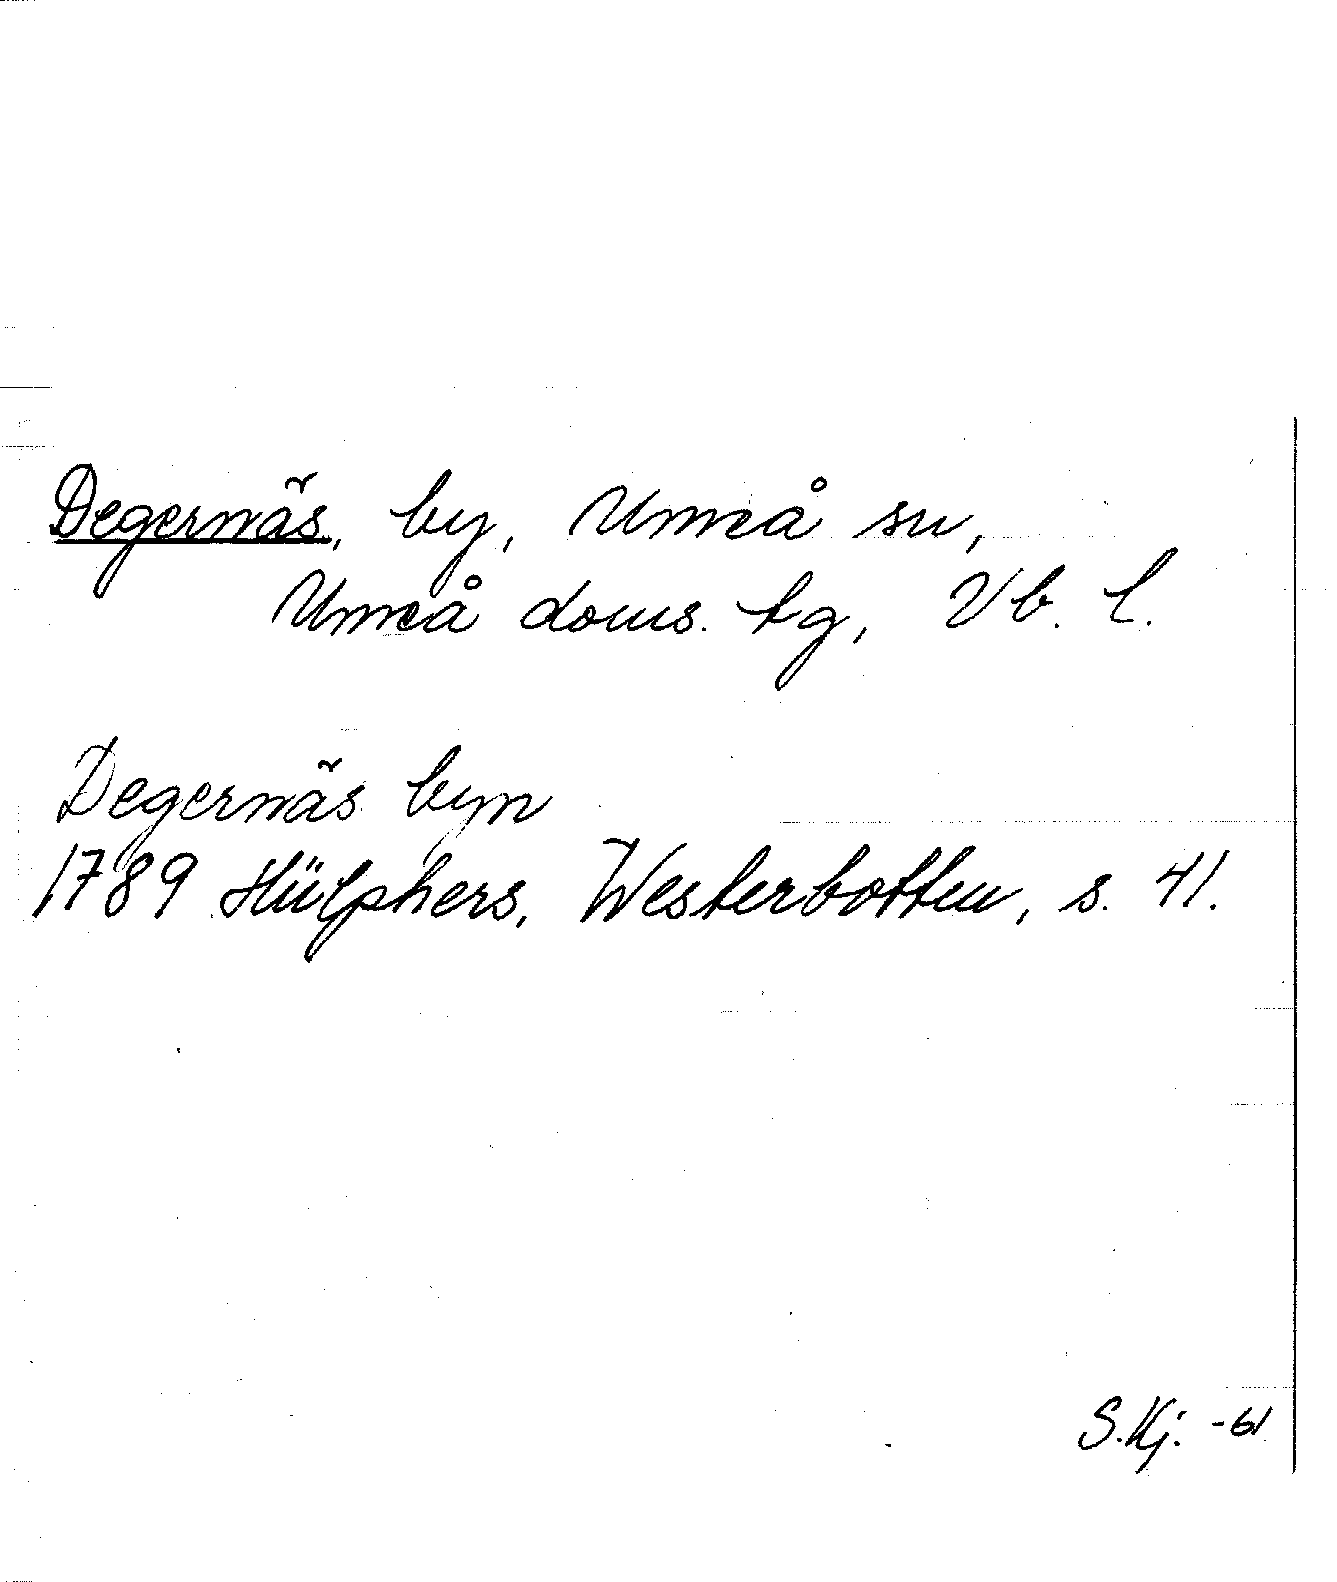 Degernäs, by, Umeå sn,
Umeå doms. tg, Vb. l.
Degernäs byn
1789 Hülphers, Westerbotten, s. 41.
S.Kj. -61